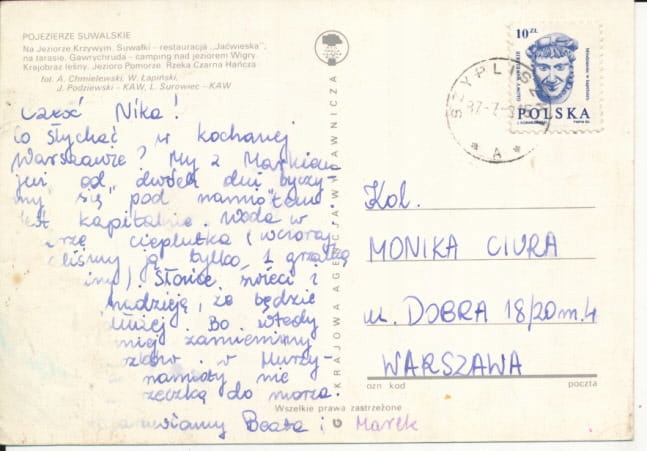 POJEZIERZE SUWALSKIE
Na Jeziorze Krzywym. Suwałki - restauracja „Jaćwieska";
na tarasie. Gawrychruda - camping nad jeziorem Wigry.
Krajobraz leśny. Jezioro Pomorze. Rzeka Czarna Hańcza
fot. A. Chmielewski, W. Łapiński,
J. Podziewski - KAW, L. Surowiec - KAW
Cześć Nika!
Co słychać w kochanej
Warszawie? My z Markiem
już od dwóch dni byczy
my się pod namiotem.
est kapitalnie. Woda w
cieplutka (wczoraj
liśmy ją tylko 1 grzałką
Słońce świeci i
nadzieję, że będzie
Bo wtedy
niej zamienimy
w Murzy-
namioty nie
rzeczką do morza.
Beata i Marek
KRAJOWA AGENCJA WYDAWNICZA
Wszelkie prawa zastrzeżone
10 ZŁ
POLSKA
SZYPLISZ
87-7-
A
Kol.
MONIKA CIURA
ul. DOBRA 18/20 m. 4
WARSZAWA
ozn kod
poczta